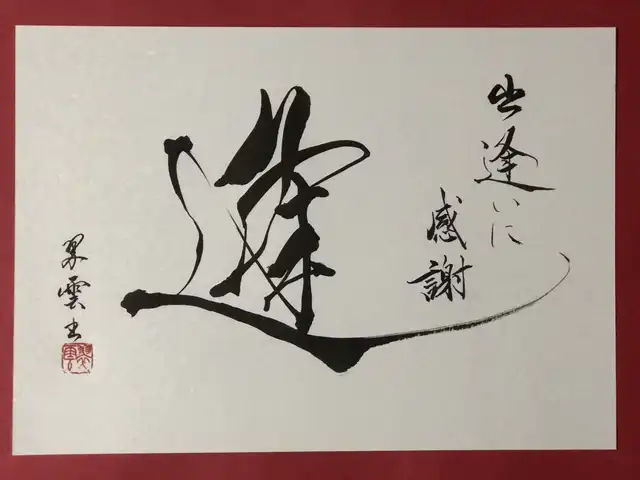 出逢いに
感謝
逢
雲書